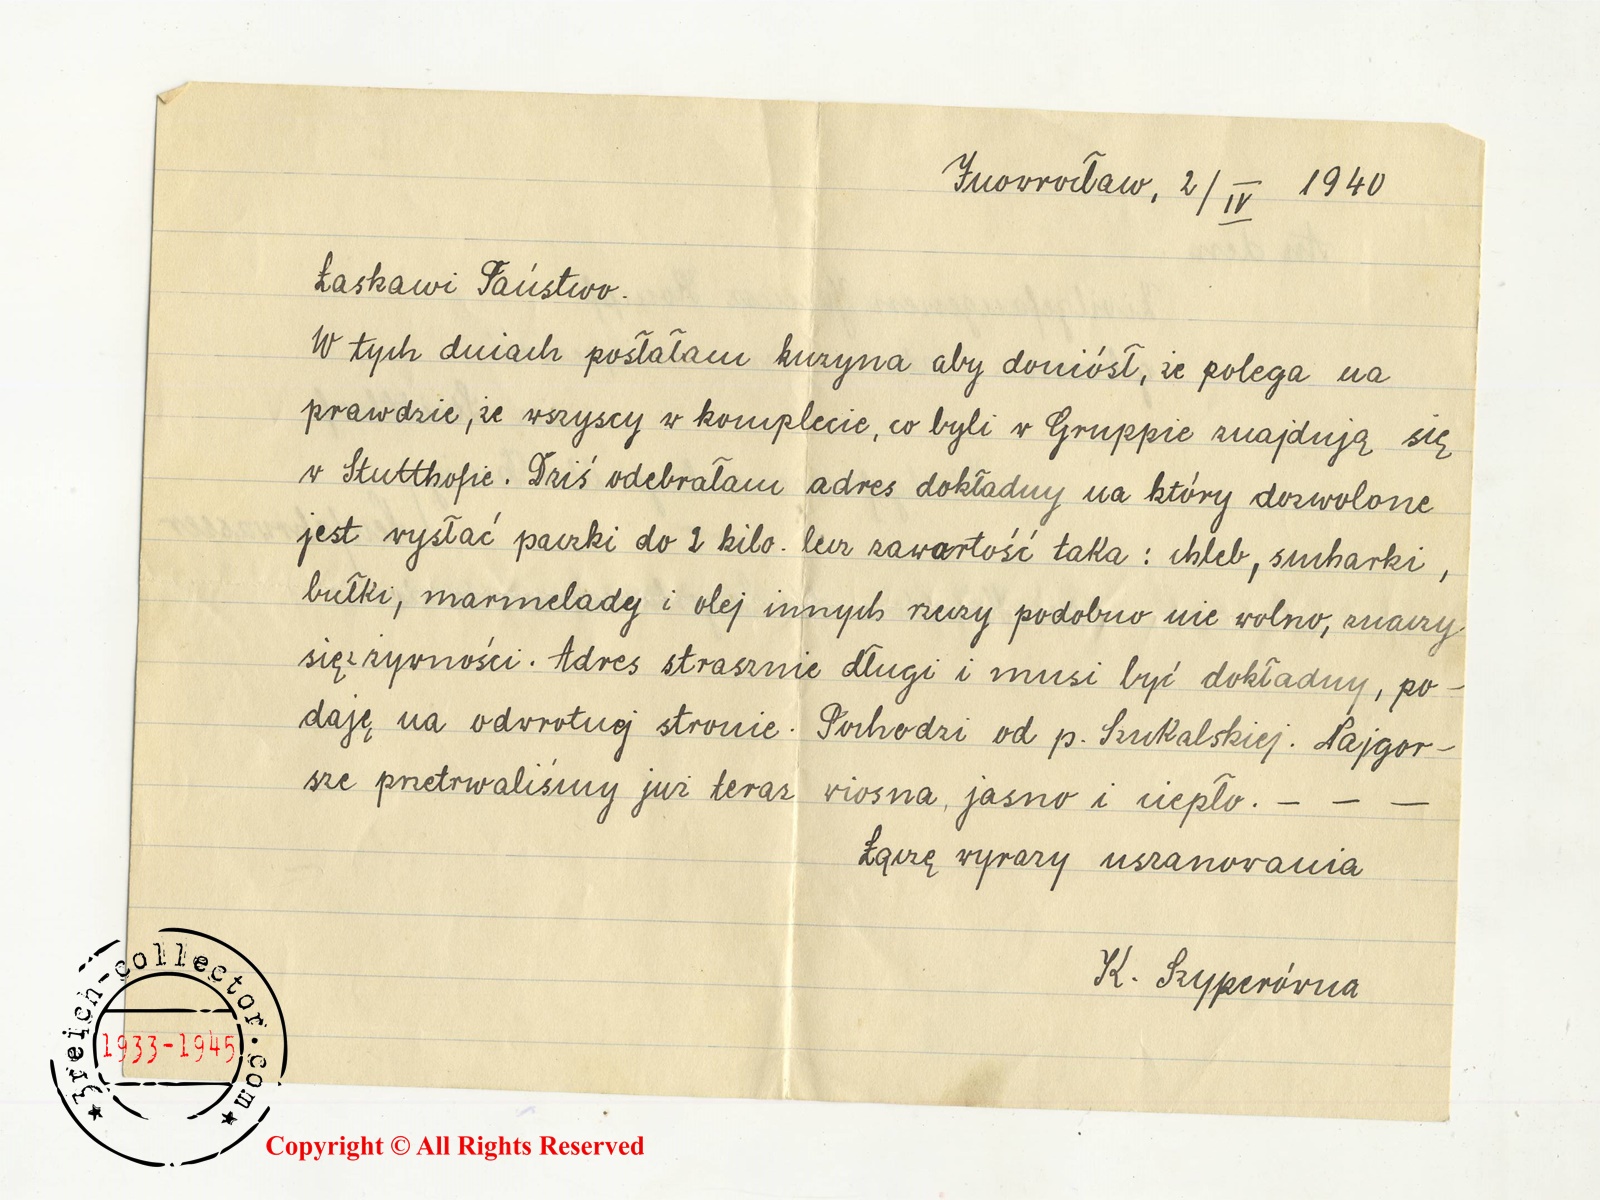 Inowrocław, 2/IV 1940
Łaskawi Państwo.
W tych dniach posłałam kuzyna aby doniósł, że polega na
prawdzie, że wszyscy w komplecie, co byli w Gruppie znajdują się
w Stutthofie. Dziś odebrałam adres dokładny na który dozwolone
jest wysłać paczki do 2 kilo. lecz zawartość taka: chleb, sucharki,
bułki, marmeladę i olej innych rzeczy podobno nie wolno, znaczy
się z żywności. Adres strasznie długi i musi być dokładny, po-
daję na odwrotnej stronie. Pochodzi od p. Szukalskiej. Najgor-
sze przetrwaliśmy już teraz wiosna, jasno i ciepło. — — —
Łączę wyrazy uszanowania
K. Szyperówna
3reich-collector.com
1933-1945
Copyright © All Rights Reserved